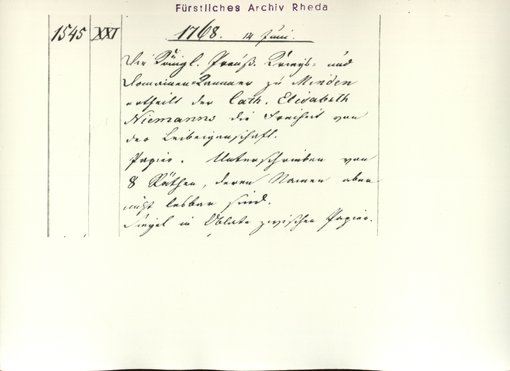 Fürstliches Archiv Rheda
1545 XXI 1768. 14 Juni.
Die Königl. Preuß. Kriegs- und
Domainen Kammer zu Minden
ertheilt der Cath. Elisabeth
Niemanns die Freiheit von
der Leibeigenschaft.
Papier. Unterschrieben von
8 Räthen, deren Namen aber
nicht lesbar sind.
Siegel in Oblate zwischen Papier.